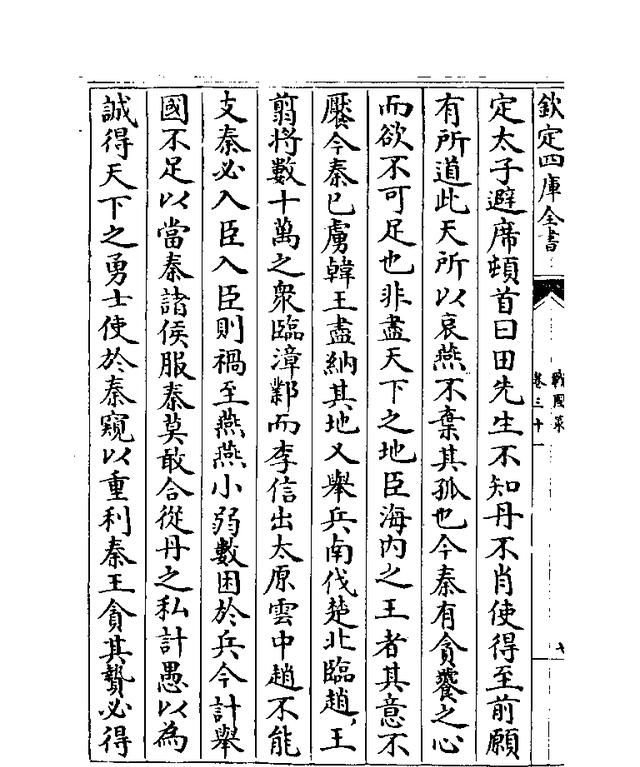 欽定四庫全書
戰國策
卷三十一
定太子避席頓首曰田先生不知丹不肖使得至前願
有所道此天所以哀燕不棄其孤也今秦有貪饕之心
而欲不可足也非盡天下之地臣海内之王者其意不
饜今秦已虜韓王盡納其地又舉兵南伐楚北臨趙王
翦將數十萬之衆臨漳鄴而李信出太原雲中趙不能
支秦必入臣入臣則禍至燕燕小弱數困於兵今計舉
國不足以當秦諸侯服秦莫敢合從丹之私計愚以為
誠得天下之勇士使於秦窺以重利秦王貪其贄必得